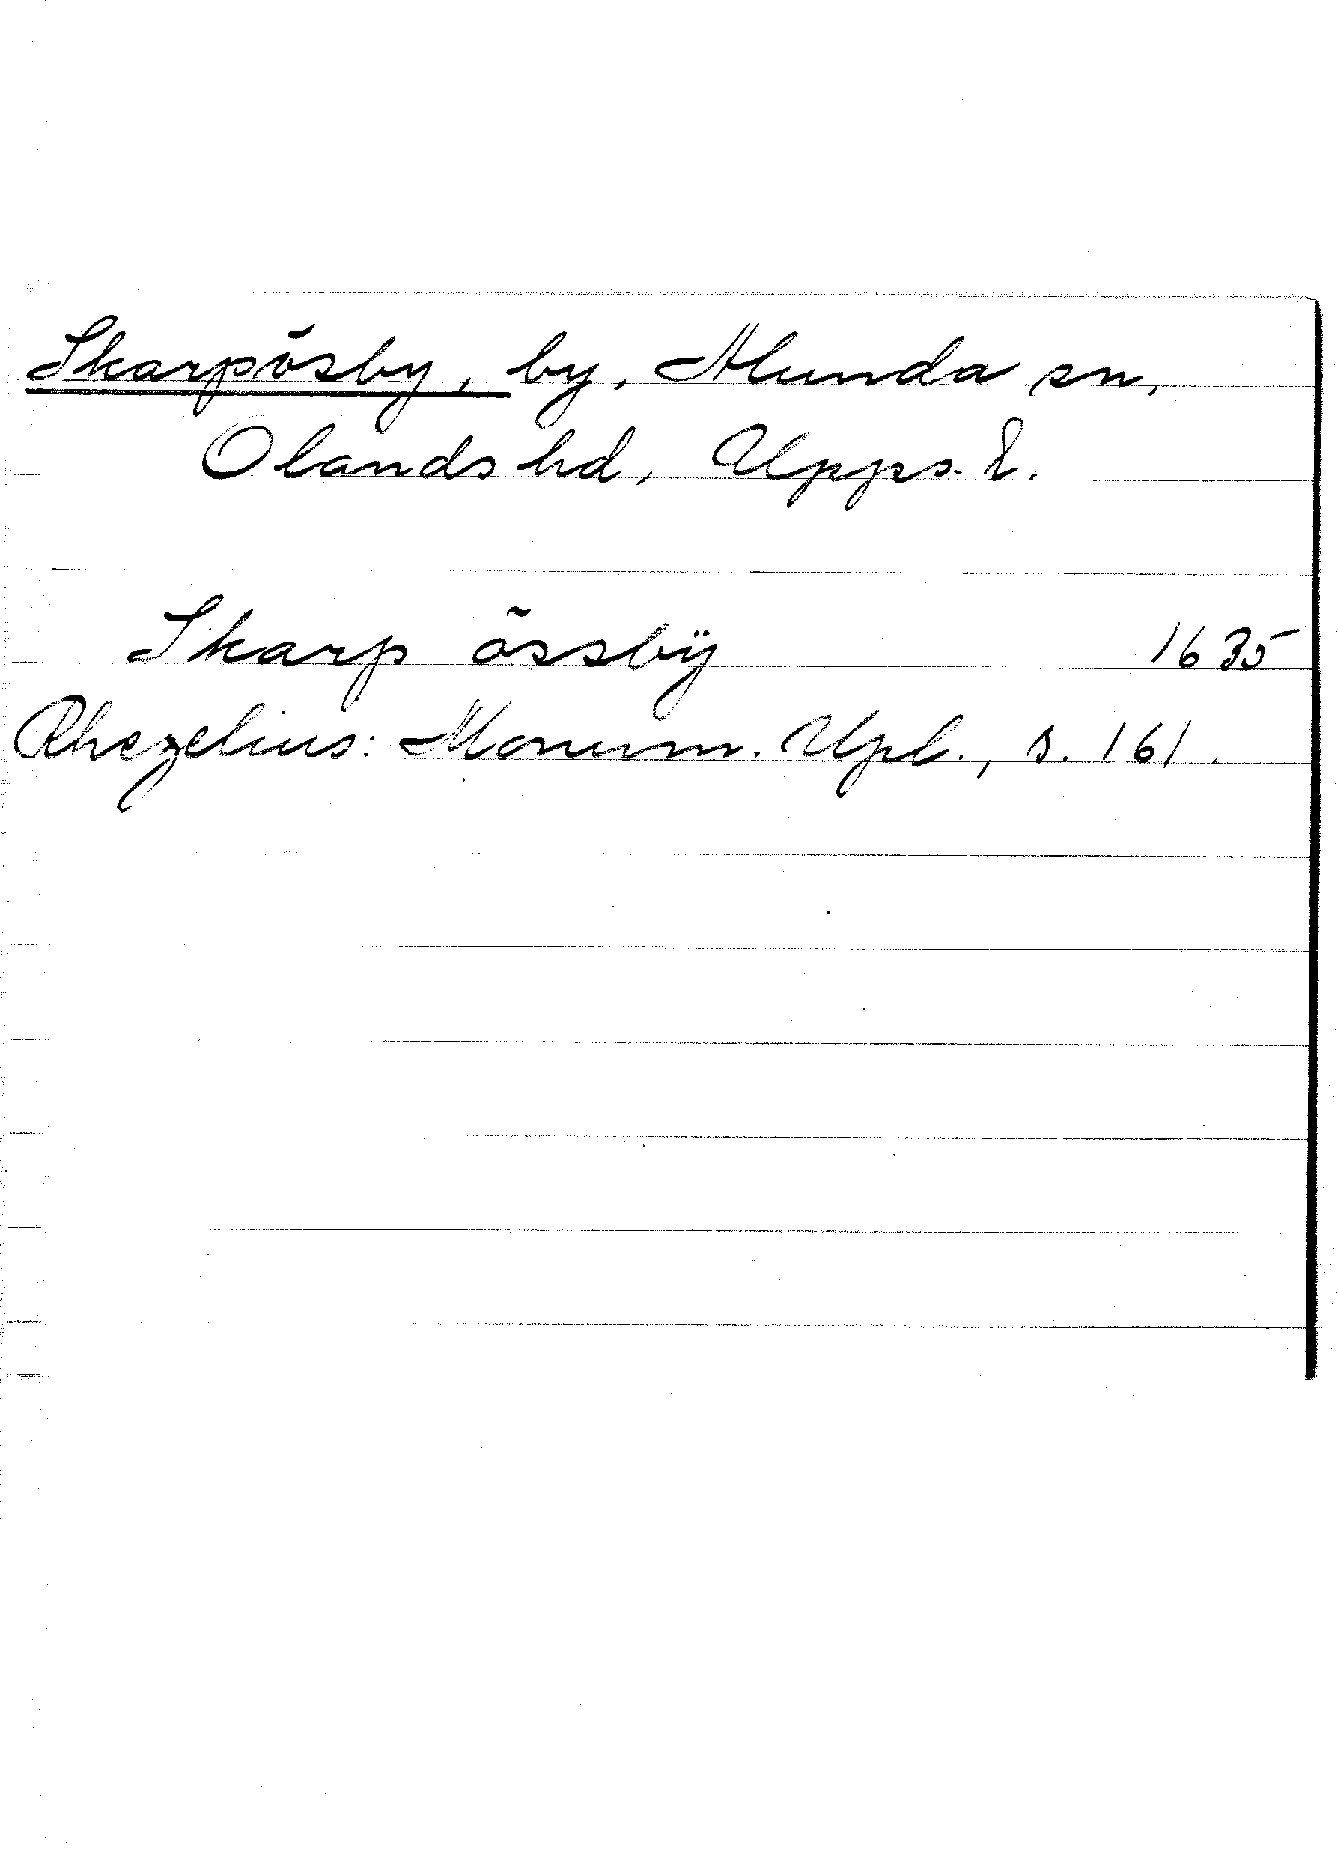 Skarpösby, by, Alunda sn,
Olands hd, Upps. l.
Skarp össbÿ 1635
Rhezelius: Monum. Upl., s. 161.